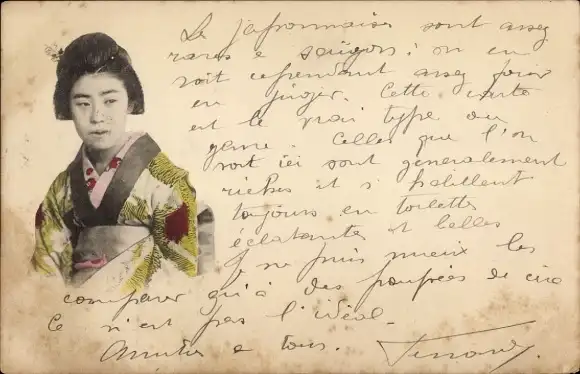 Les japonnaises sont assez
rares à saigon ; on en
voit cependant assez pour
en juger. Cette carte
est le vrai type du
genre. Celles que l'on
voit ici sont généralement
riches et s'habillent
toujours en toilettes
éclatantes et belles
Je ne puis mieux les
comparer qu'à des poupées de cire
Ce n'est pas l'idéal.
Amitiés à tous.